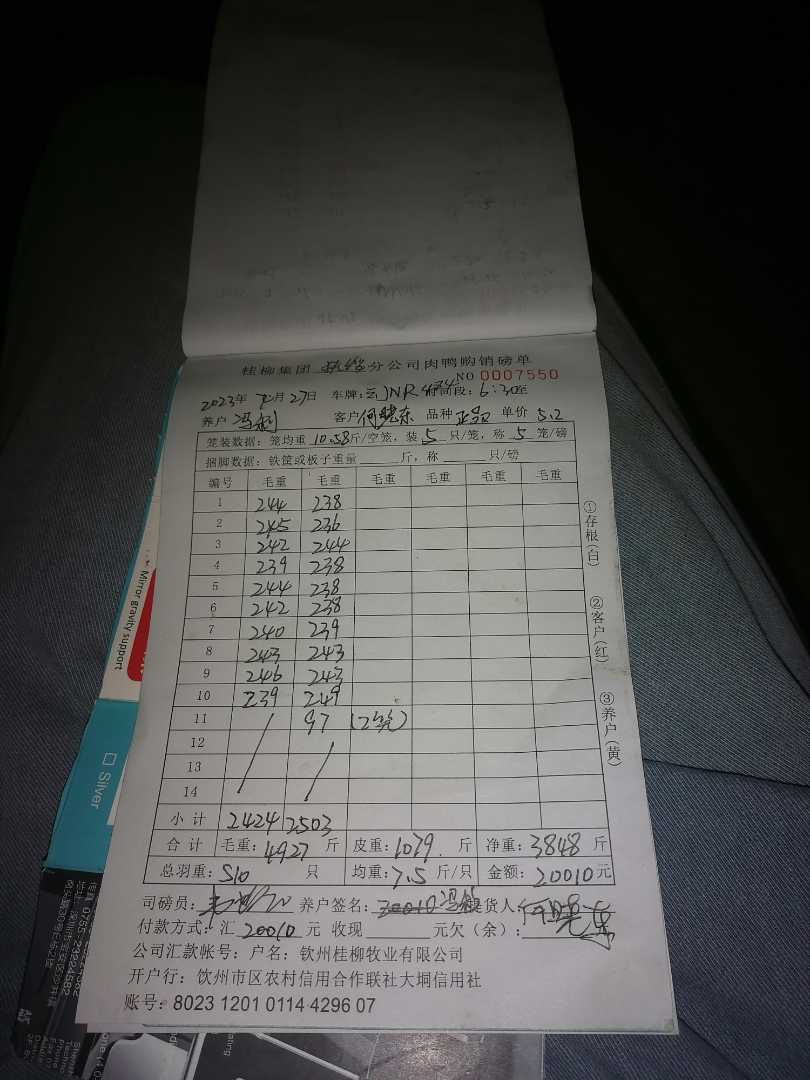 桂柳集团 分公司肉鸭购销磅单
NO 0007550
2023年 月27日 车牌: JNR474 时间段: 6:30至
养户 冯 客户 何晓东 品种 单价 5.2
笼装数据: 笼均重 10.58斤/空笼, 装 5 只/笼, 称 5 笼/磅
捆脚数据: 铁筐或板子重量 斤, 称 只/磅
编号 毛重 毛重 毛重 毛重 毛重 毛重
1 244 238
2 245 236
3 242 244
4 239 238
5 244 238
6 242 238
7 240 239
8 243 243
9 246 243
10 239 249
11 97 (2笼)
12
13
14
小计 2424 2503
合计 毛重: 4927 斤 皮重: 1079 斤 净重: 3848 斤
总羽重: 510 只 均重: 7.5 斤/只 金额: 20010 元
司磅员: 养户签名: 20010 冯 提货人: 何晓东
付款方式: 汇 20010 元 收现 元欠(余):
公司汇款帐号: 户名: 钦州桂柳牧业有限公司
开户行: 钦州市区农村信用合作联社大垌信用社
账号: 8023 1201 0114 4296 07
①存根(白)
②客户(红)
③养户(黄)
Mirror gravity support
Silver